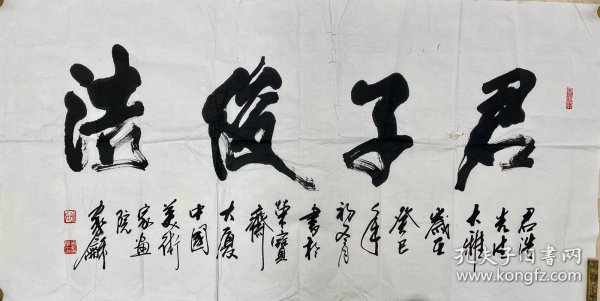 君子俊浩
君浩
先生
大雅
歲在
癸巳
年
初冬月
書於
榮寶
齋
大厦
中國
美術
家画
院
家龢
孔夫子旧书网
www.kongfz.com